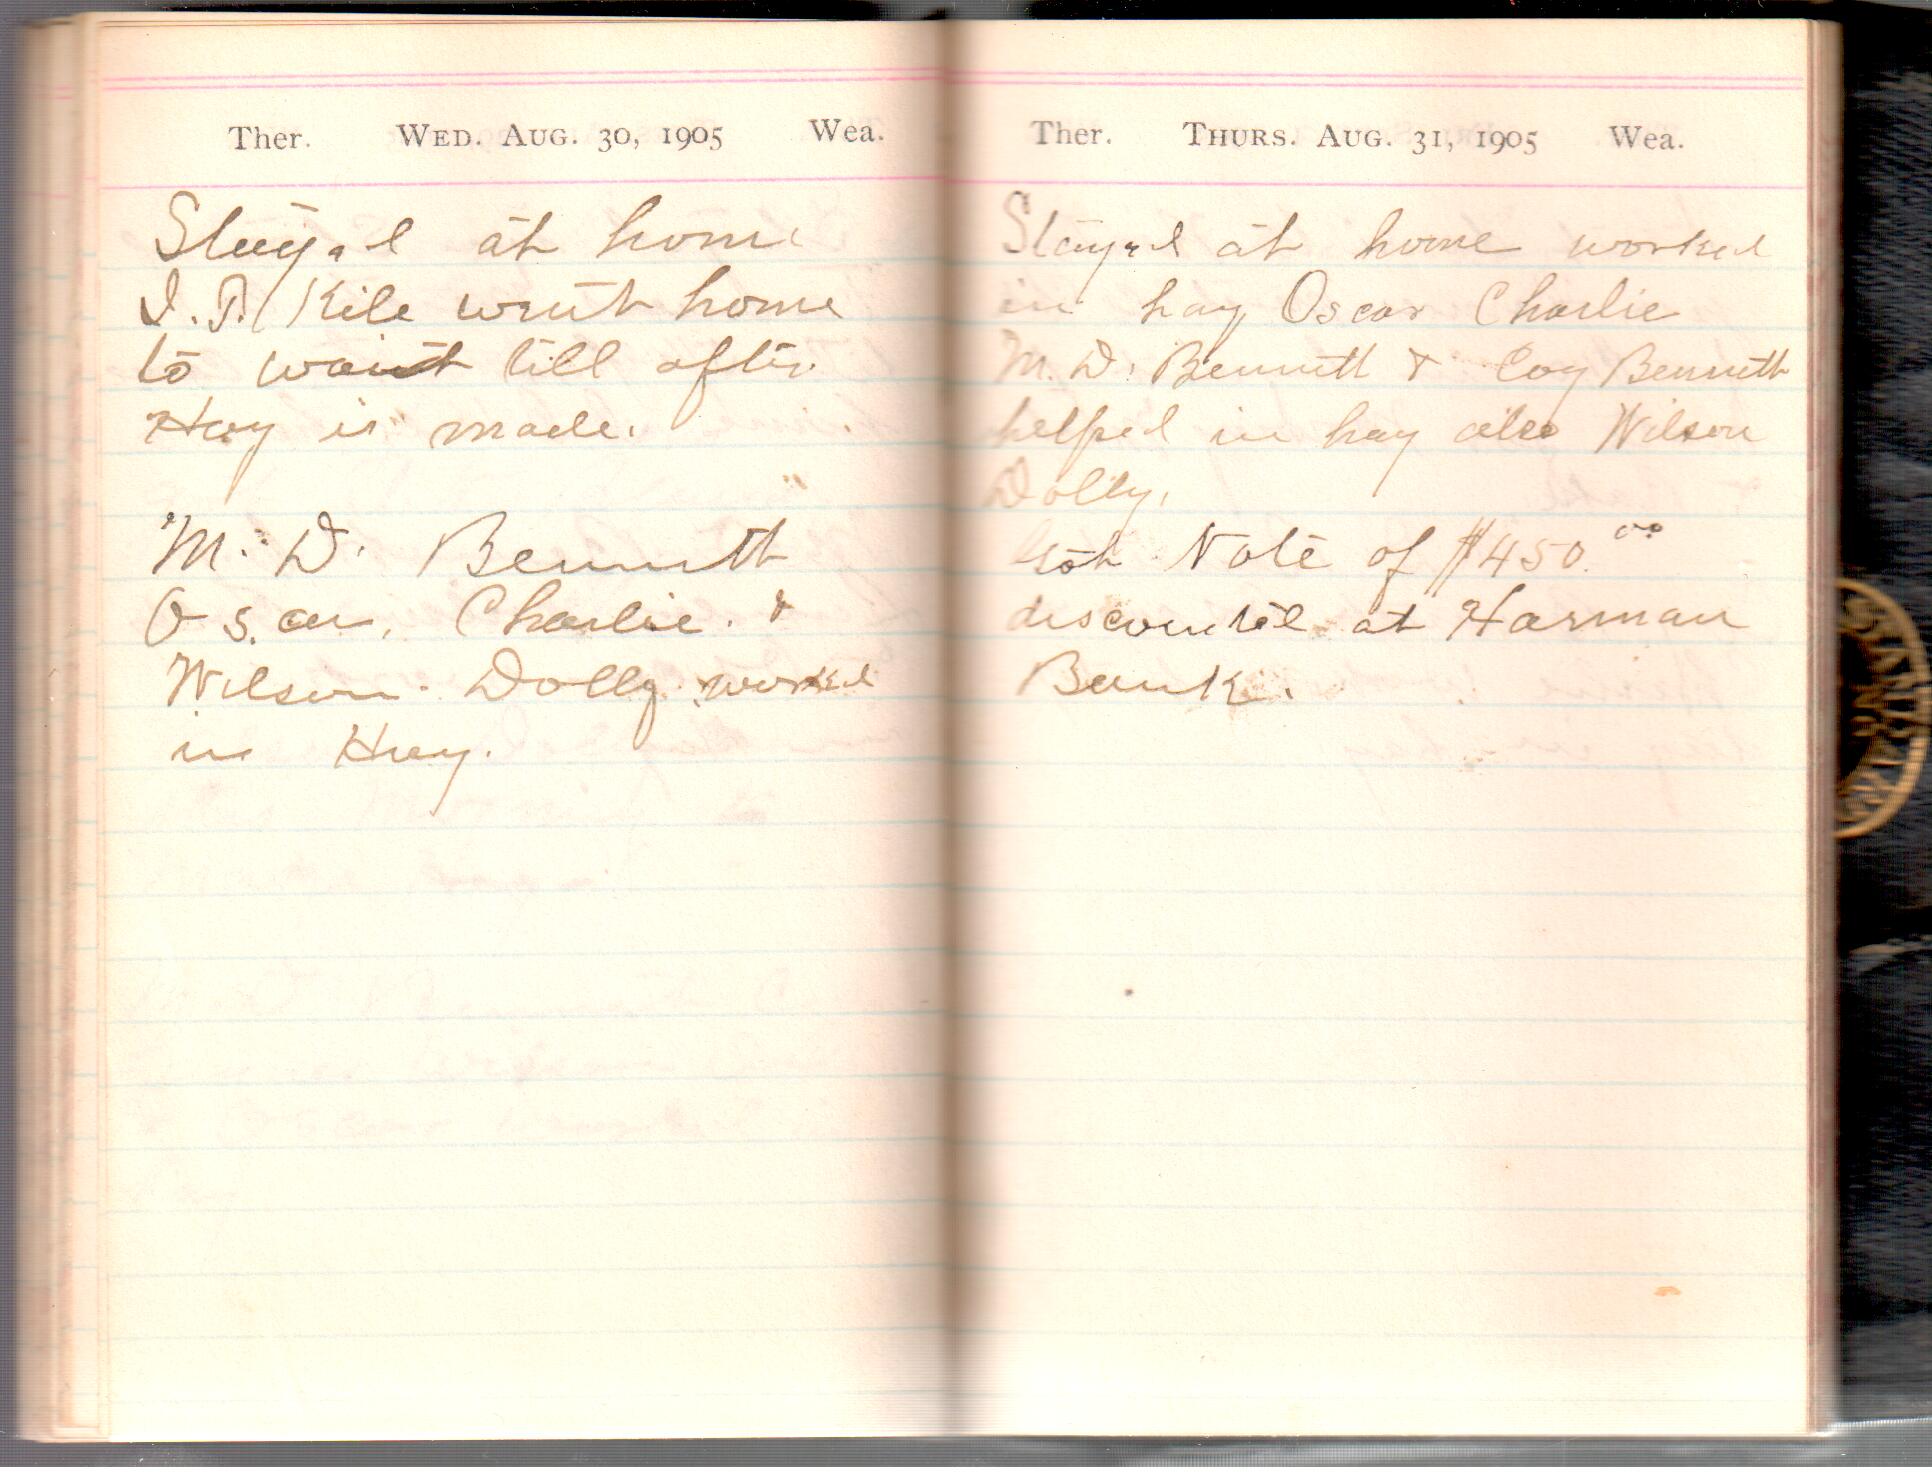 Ther. WED. AUG. 30, 1905 Wea.
Stayed at home
I. P. Kile went home
to wait till after
Hay is made.
M. D. Bennett
Oscar, Charlie. &
Wilson. Dolly worked
in Hay.
Ther. THURS. AUG. 31, 1905 Wea.
Stayed at home worked
in hay Oscar Charlie
M. D. Bennett & Coy Bennett
helped in hay also Wilson
Dolly.
Got Note of $450.00
discounted at Harman
Bank.